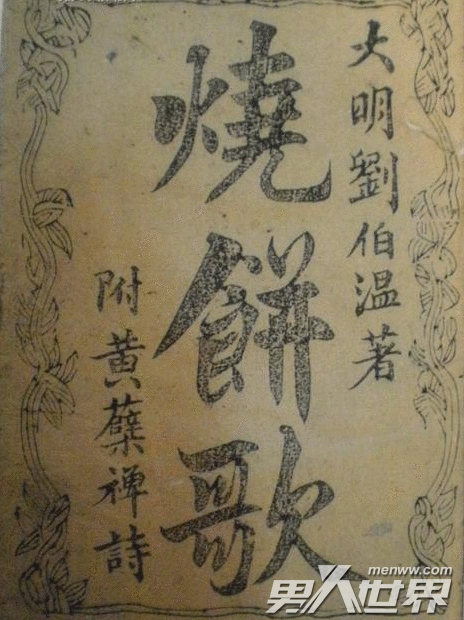 大明劉伯温著
燒餅歌
附黃蘗禅詩
menww.com
男人世界